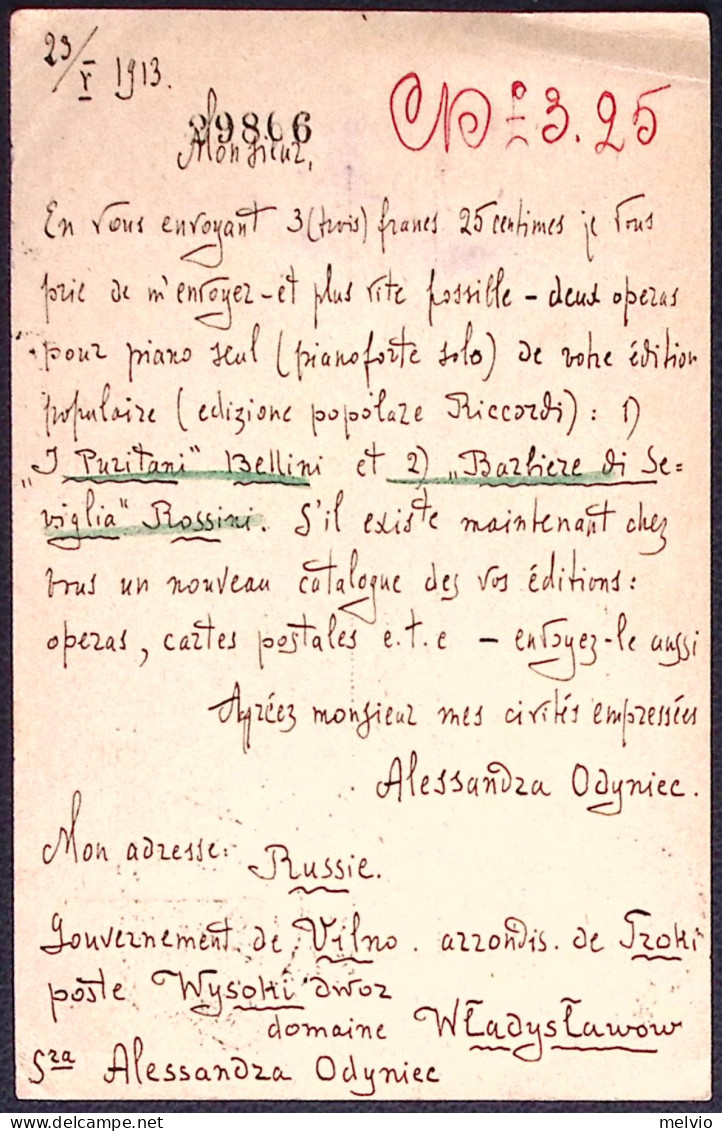 23/V 1913.
29806
CP £ 3.25
Monsieur,
En vous envoyant 3 (trois) francs 25 centimes je vous
prie de m'envoyer - et plus vite possible - deux operas
pour piano seul (pianoforte solo) de votre édition
populaire (edizione popolare Riccordi): 1)
„I Puritani" Bellini et 2) „Barbiere di Se=
viglia" Rossini. S'il existe maintenant chez
vous un nouveau catalogue des vos éditions:
operas, cartes postales e.t.c - envoyez-le aussi
Agréez monsieur mes civités empressées
Alessandra Odyniec.
Mon adresse: Russie.
Gouvernement de Vilno. arrondis. de Troki
poste Wysoki dwor
domaine Władysławow
Sra Alessandra Odyniec
melvio